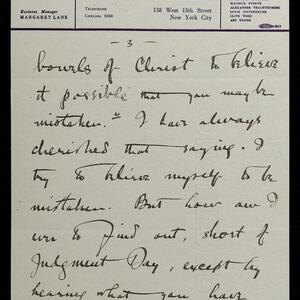 Business Manager
MARGARET LANE
TELEPHONE
CHELSEA
138 West 13th Street
New York City
MAURICE STERNE
ALEXANDER TRACHTENBERG
LOUIS UNTERMEYER
CLIVE WEED
ART YOUNG
- 3 -
bowels of Christ to believe
it possible that you may be
mistaken." I have always
cherished that saying. I
try to believe myself to be
mistaken. But how am I
ever to find out, short of
Judgment Day, except by
hearing what you have